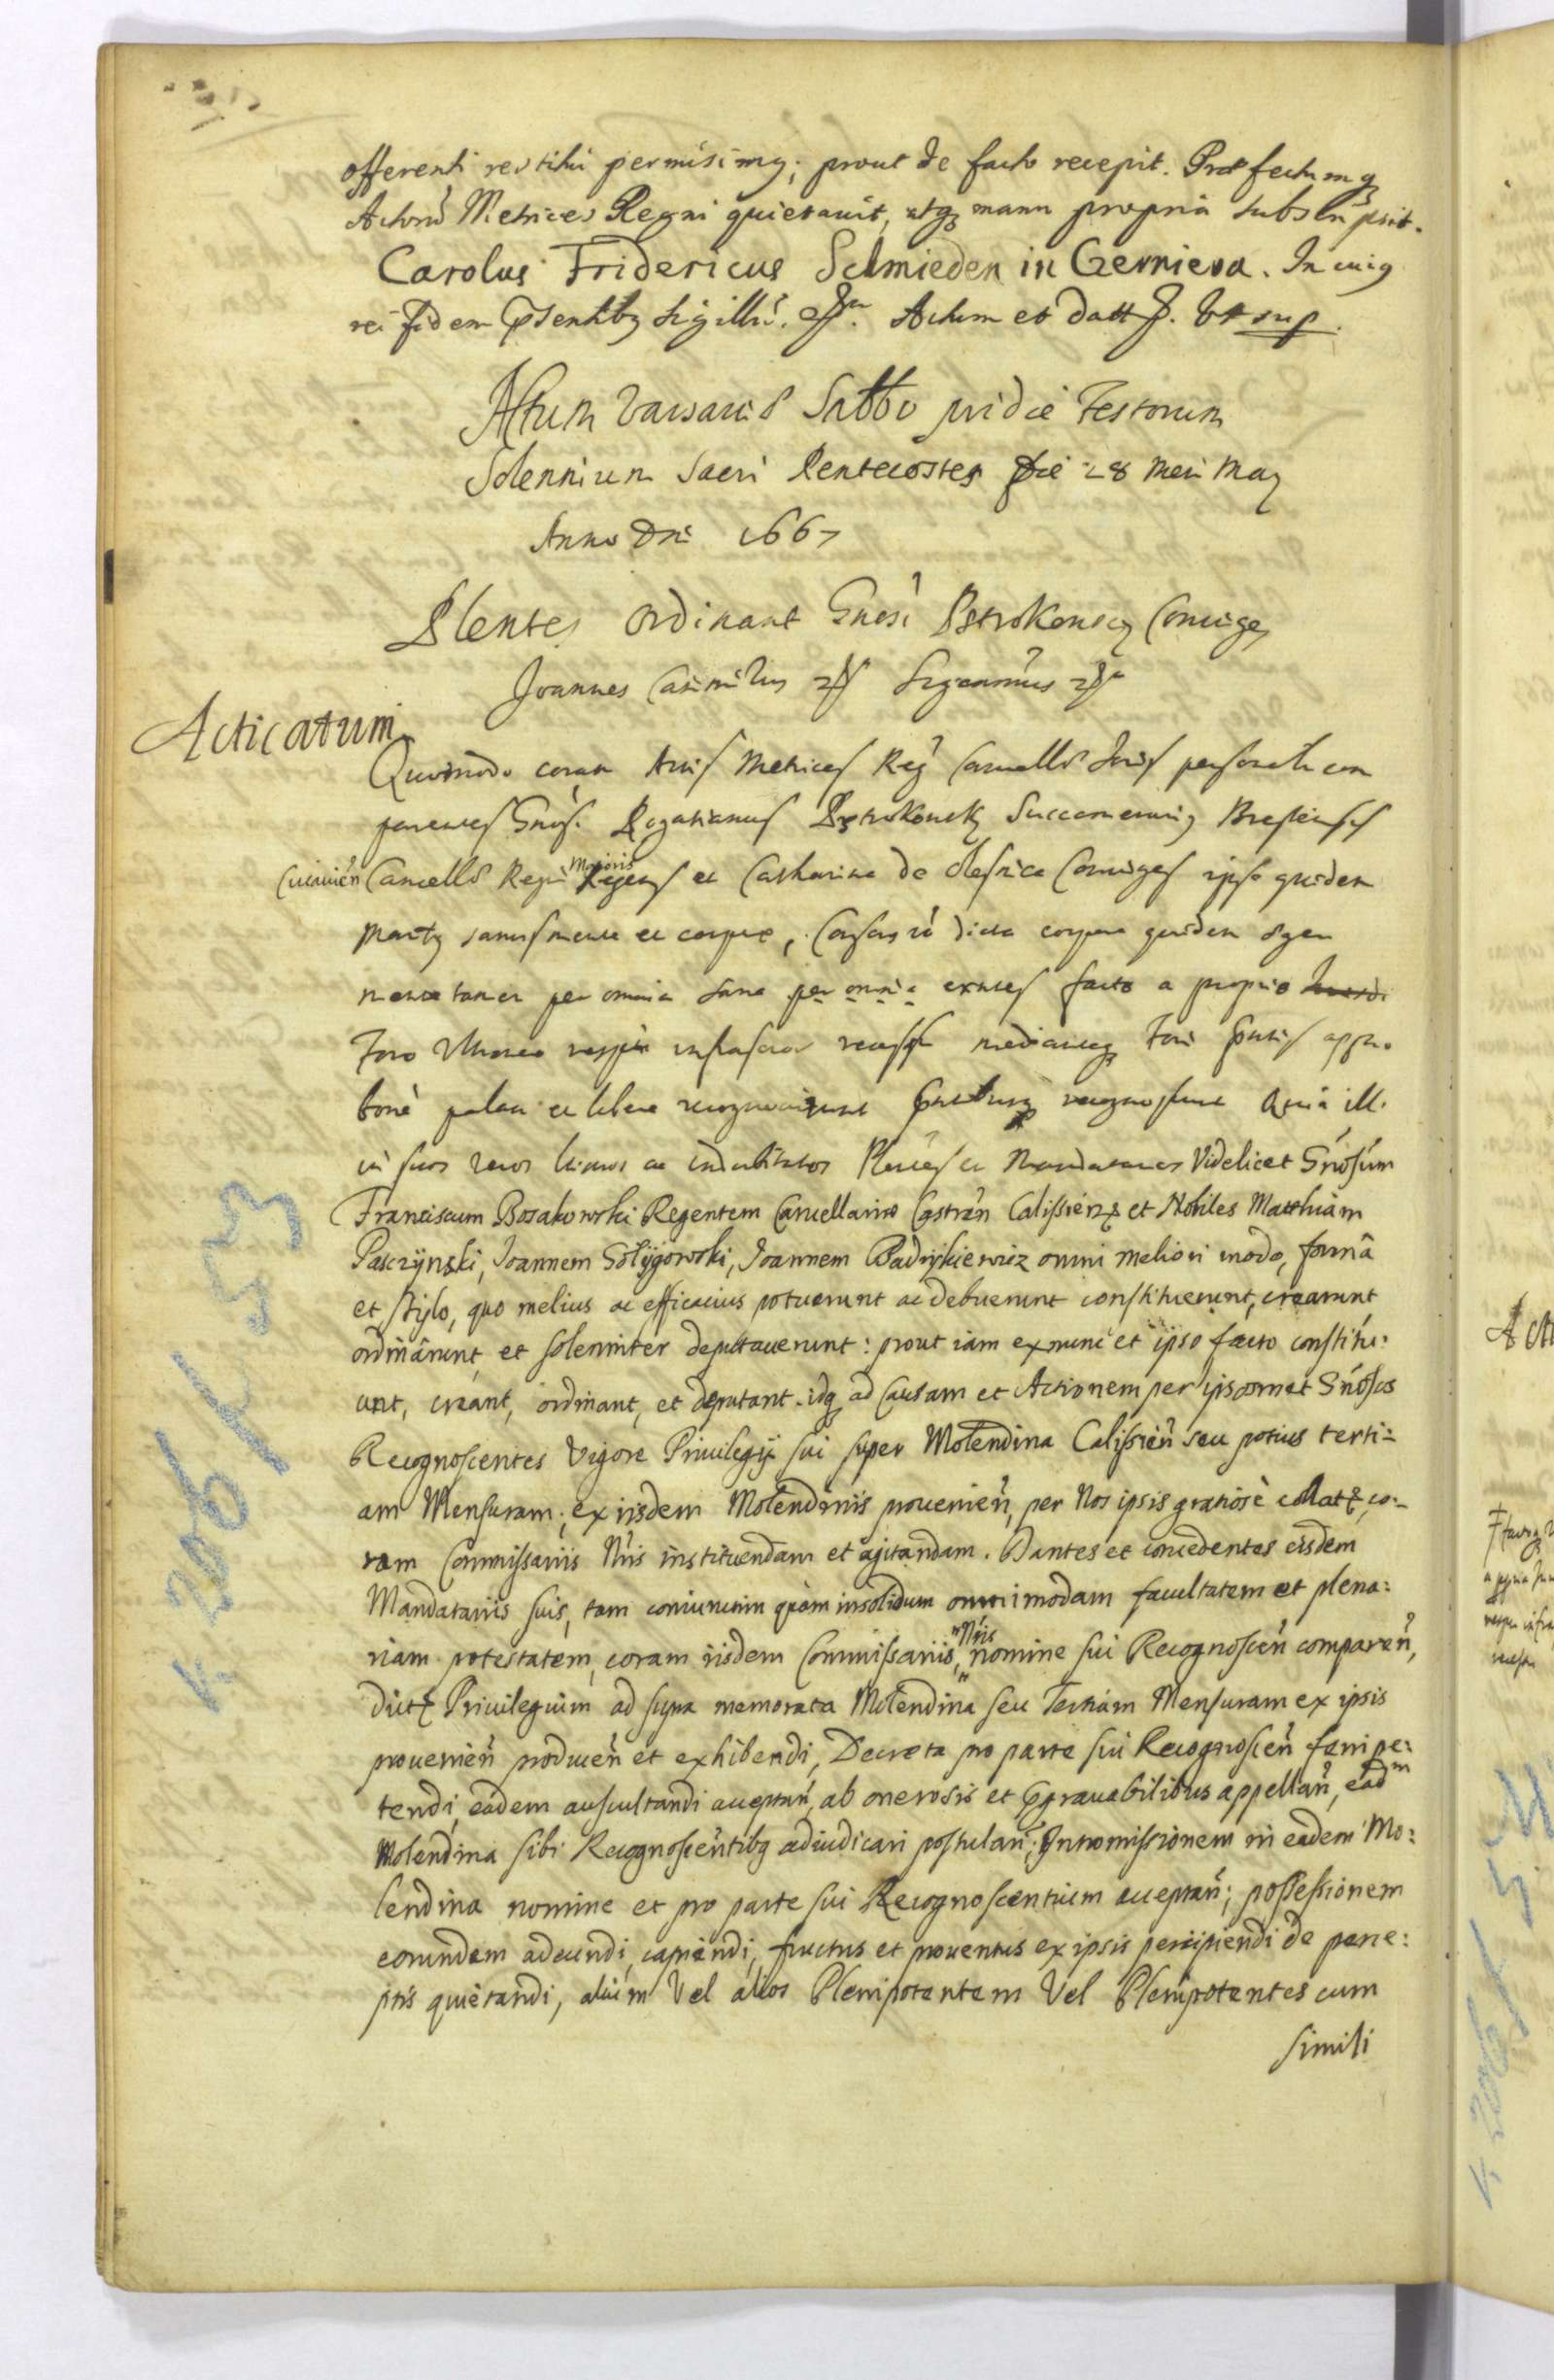 offerenti restitui permisimq; prout de facto recepit. Prot fectumq
Actorũ Metrices Regni quietauit, atq manu propria subscripsit.
Carolus Fridericus Schmieden in Gernieva. In cuiq
rei fidem Psentibq sigillũ. Actum et datt. Vt sup.
Actum Varsauiæ Sabbo pridie Festorum
Solennium Sacri Pentecostes die 28 Men May
Anno Dni 1667
Plentes ordinant Gnosi Pstrokonscy Coniuges
Joannes Casimirus Significamus
Acticatum
Quomodo coram Actis Metrices Reg Cancellæ personaliter com
parentes Gnosi Rogatianus Pstrokonsky Succamerariq Brestensis
Cuiauien Cancellæ Regni Majoris Regens et Catharina de Olesnica Coniuges ipse quidem
Maritq sanus mente et corpore, Consors vo dicta corpore quidem ægra
mente tamen per omnia sana per omnia exntes facto a proprio
Foro recessu mediante Fori Pntis appro
bone palam et libere recognouerunt Pntibusq recognoscunt Quia ill.
in suos veros ltimos ac indubitatos Plentes et Mandatarios Videlicet Gnosum
Franciscum Bosakowski Regentem Cancellariæ Castren Calissien et Nobiles Matthiam
Pasczÿnski, Joannem Golÿgowski, Joannem Badzÿkiewicz omni meliori modo, formâ
et stÿlo, quo melius ac efficacius potuerunt ac debuerunt constituerunt, crearunt
ordinârunt et solenniter deputauerunt: prout iam ex nunc et ipso facto constitu:
unt, creant, ordinant, et deputant. idq ad Causam et Actionem per ipsosmet Gnosos
Recognoscentes Vigore Priuilegÿ sui super Molendina Calissien seu potius terti=
am Mensuram, ex iisdem Molendinis prouenien, per Nos ipsis gratiosè collatæ, co:
ram Commissariis Nris instituendam et agitandam. Dantes et concedentes eisdem
Mandatariis suis, tam coniunctim quàm insolidum omnimodam facultatem et plena:
riam potestatem, coram iisdem Commissariis, Nris nomine sui Recognoscen comparen,
dictæ Priuilegium ad supra memorata Molendina seu Tertiam Mensuram ex ipsis
prouenien producen et exhibendi, Decreta pro parte sui Recognoscen ferri pe:
tendi, eadem auscultandi acceptan, ab onerosis et Pgrauabilibus appellan, eadm
Molendina sibi Recognoscentibq adiudicari postulan; Intromissionem in eadem Mo:
lendina nomine et pro parte sui Recognoscentium acceptan; possessionem
eorundem adeundi, capiendi, fructus et prouentus ex ipsis percipiendi de perce:
ptis quietandi, alium Vel alios Plenipotentem Vel Plenipotentes cum
simili